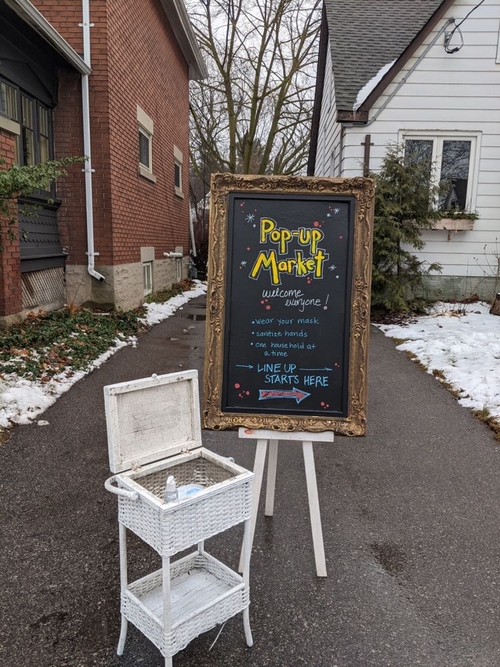 Pop-up
Market
welcome
everyone!
• wear your mask
• sanitize hands
• one household at
a time
→ LINE UP →
STARTS HERE